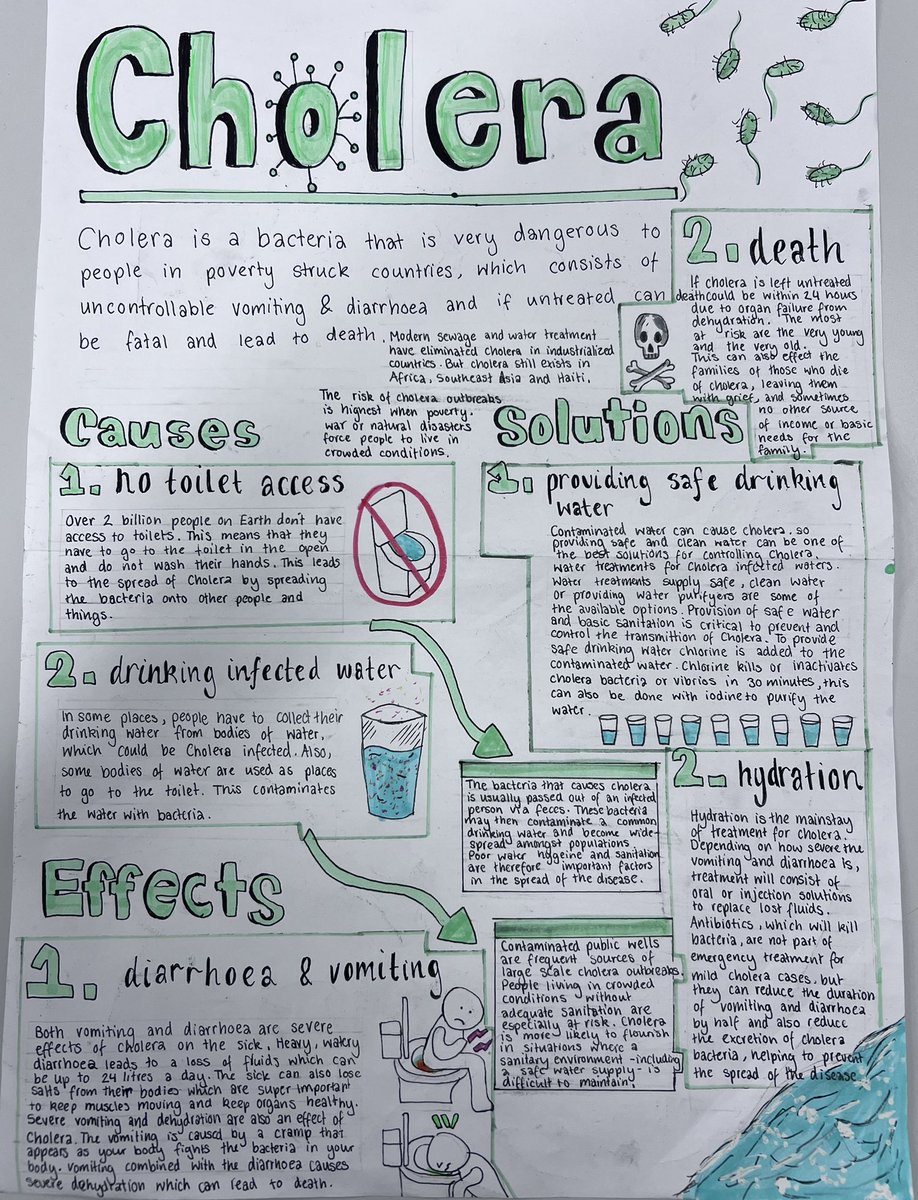 Cholera
Cholera is a bacteria that is very dangerous to
people in poverty struck countries, which consists of
uncontrollable vomiting & diarrhoea and if untreated can
be fatal and lead to death.
Modern sewage and water treatment
have eliminated cholera in industrialized
countries. But cholera still exists in
Africa, Southeast Asia and Haiti.
The risk of cholera outbreaks
is highest when poverty.
war or natural disasters
force people to live in
crowded conditions.
2. death
If cholera is left untreated
death could be within 24 hours
due to organ failure from
dehydration. The most
at risk are the very young
and the very old.
This can also effect the
families of those who die
of cholera, leaving them
with grief, and sometimes
no other source
of income or basic
needs for the
family.
Causes
1. no toilet access
Over 2 billion people on Earth don't have
access to toilets. This means that they
have to go to the toilet in the open
and do not wash their hands. This leads
to the spread of Cholera by spreading
the bacteria onto other people and
things.
2. drinking infected water
In some places, people have to collect their
drinking water from bodies of water,
which could be Cholera infected. Also,
some bodies of water are used as places
to go to the toilet. This contaminates
the water with bacteria.
Solutions
1. providing safe drinking
water
Contaminated water can cause cholera. so
providing safe and clean water can be one of
the best solutions for controlling Cholera.
Water treatments for Cholera infected waters.
Water treatments supply safe, clean water
or providing water purifyers are some of
the available options. Provision of safe water
and basic sanitation is critical to prevent and
control the transmittion of Cholera. To provide
safe drinking water chlorine is added to the
contaminated water. Chlorine kills or inactivates
cholera bacteria or vibrios in 30 minutes, this
can also be done with iodine to purify the
water.
The bacteria that causes cholera
is usually passed out of an infected
person via feces. These bacteria
may then contaminate a common
drinking water and become wide-
spread amongst populations
Poor water hygeine and sanitation
are therefore important factors
in the spread of the disease.
2. hydration
Hydration is the mainstay
of treatment for cholera.
Depending on how severe the
vomiting and diarrhoea is,
treatment will consist of
oral or injection solutions
to replace lost fluids.
Antibiotics, which will kill
bacteria, are not part of
emergency treatment for
mild cholera cases. but
they can reduce the duration
of vomiting and diarrhoea
by half and also reduce
the excretion of cholera
bacteria, helping to prevent
the spread of the disease
Effects
1. diarrhoea & vomiting
Both vomiting and diarrhoea are severe
effects of cholera on the sick. Heavy, watery
diarrhoea leads to a loss of fluids which can
be up to 24 litres a day. The sick can also lose
salts from their bodies which are super important
to keep muscles moving and keep organs healthy.
Severe vomiting and dehydration are also an effect of
Cholera. The vomiting is caused by a cramp that
appears as your body fights the bacteria in your
body. vomiting combined with the diarrhoea causes
severe dehydration which can lead to death.
Contaminated public wells
are frequent sources of
large scale cholera outbreaks.
People living in crowded
conditions without
adequate sanitation are
especially at risk. Cholera
is more likely to flourish
in situations where a
sanitary environment - including
a safe water supply - is
difficult to maintain